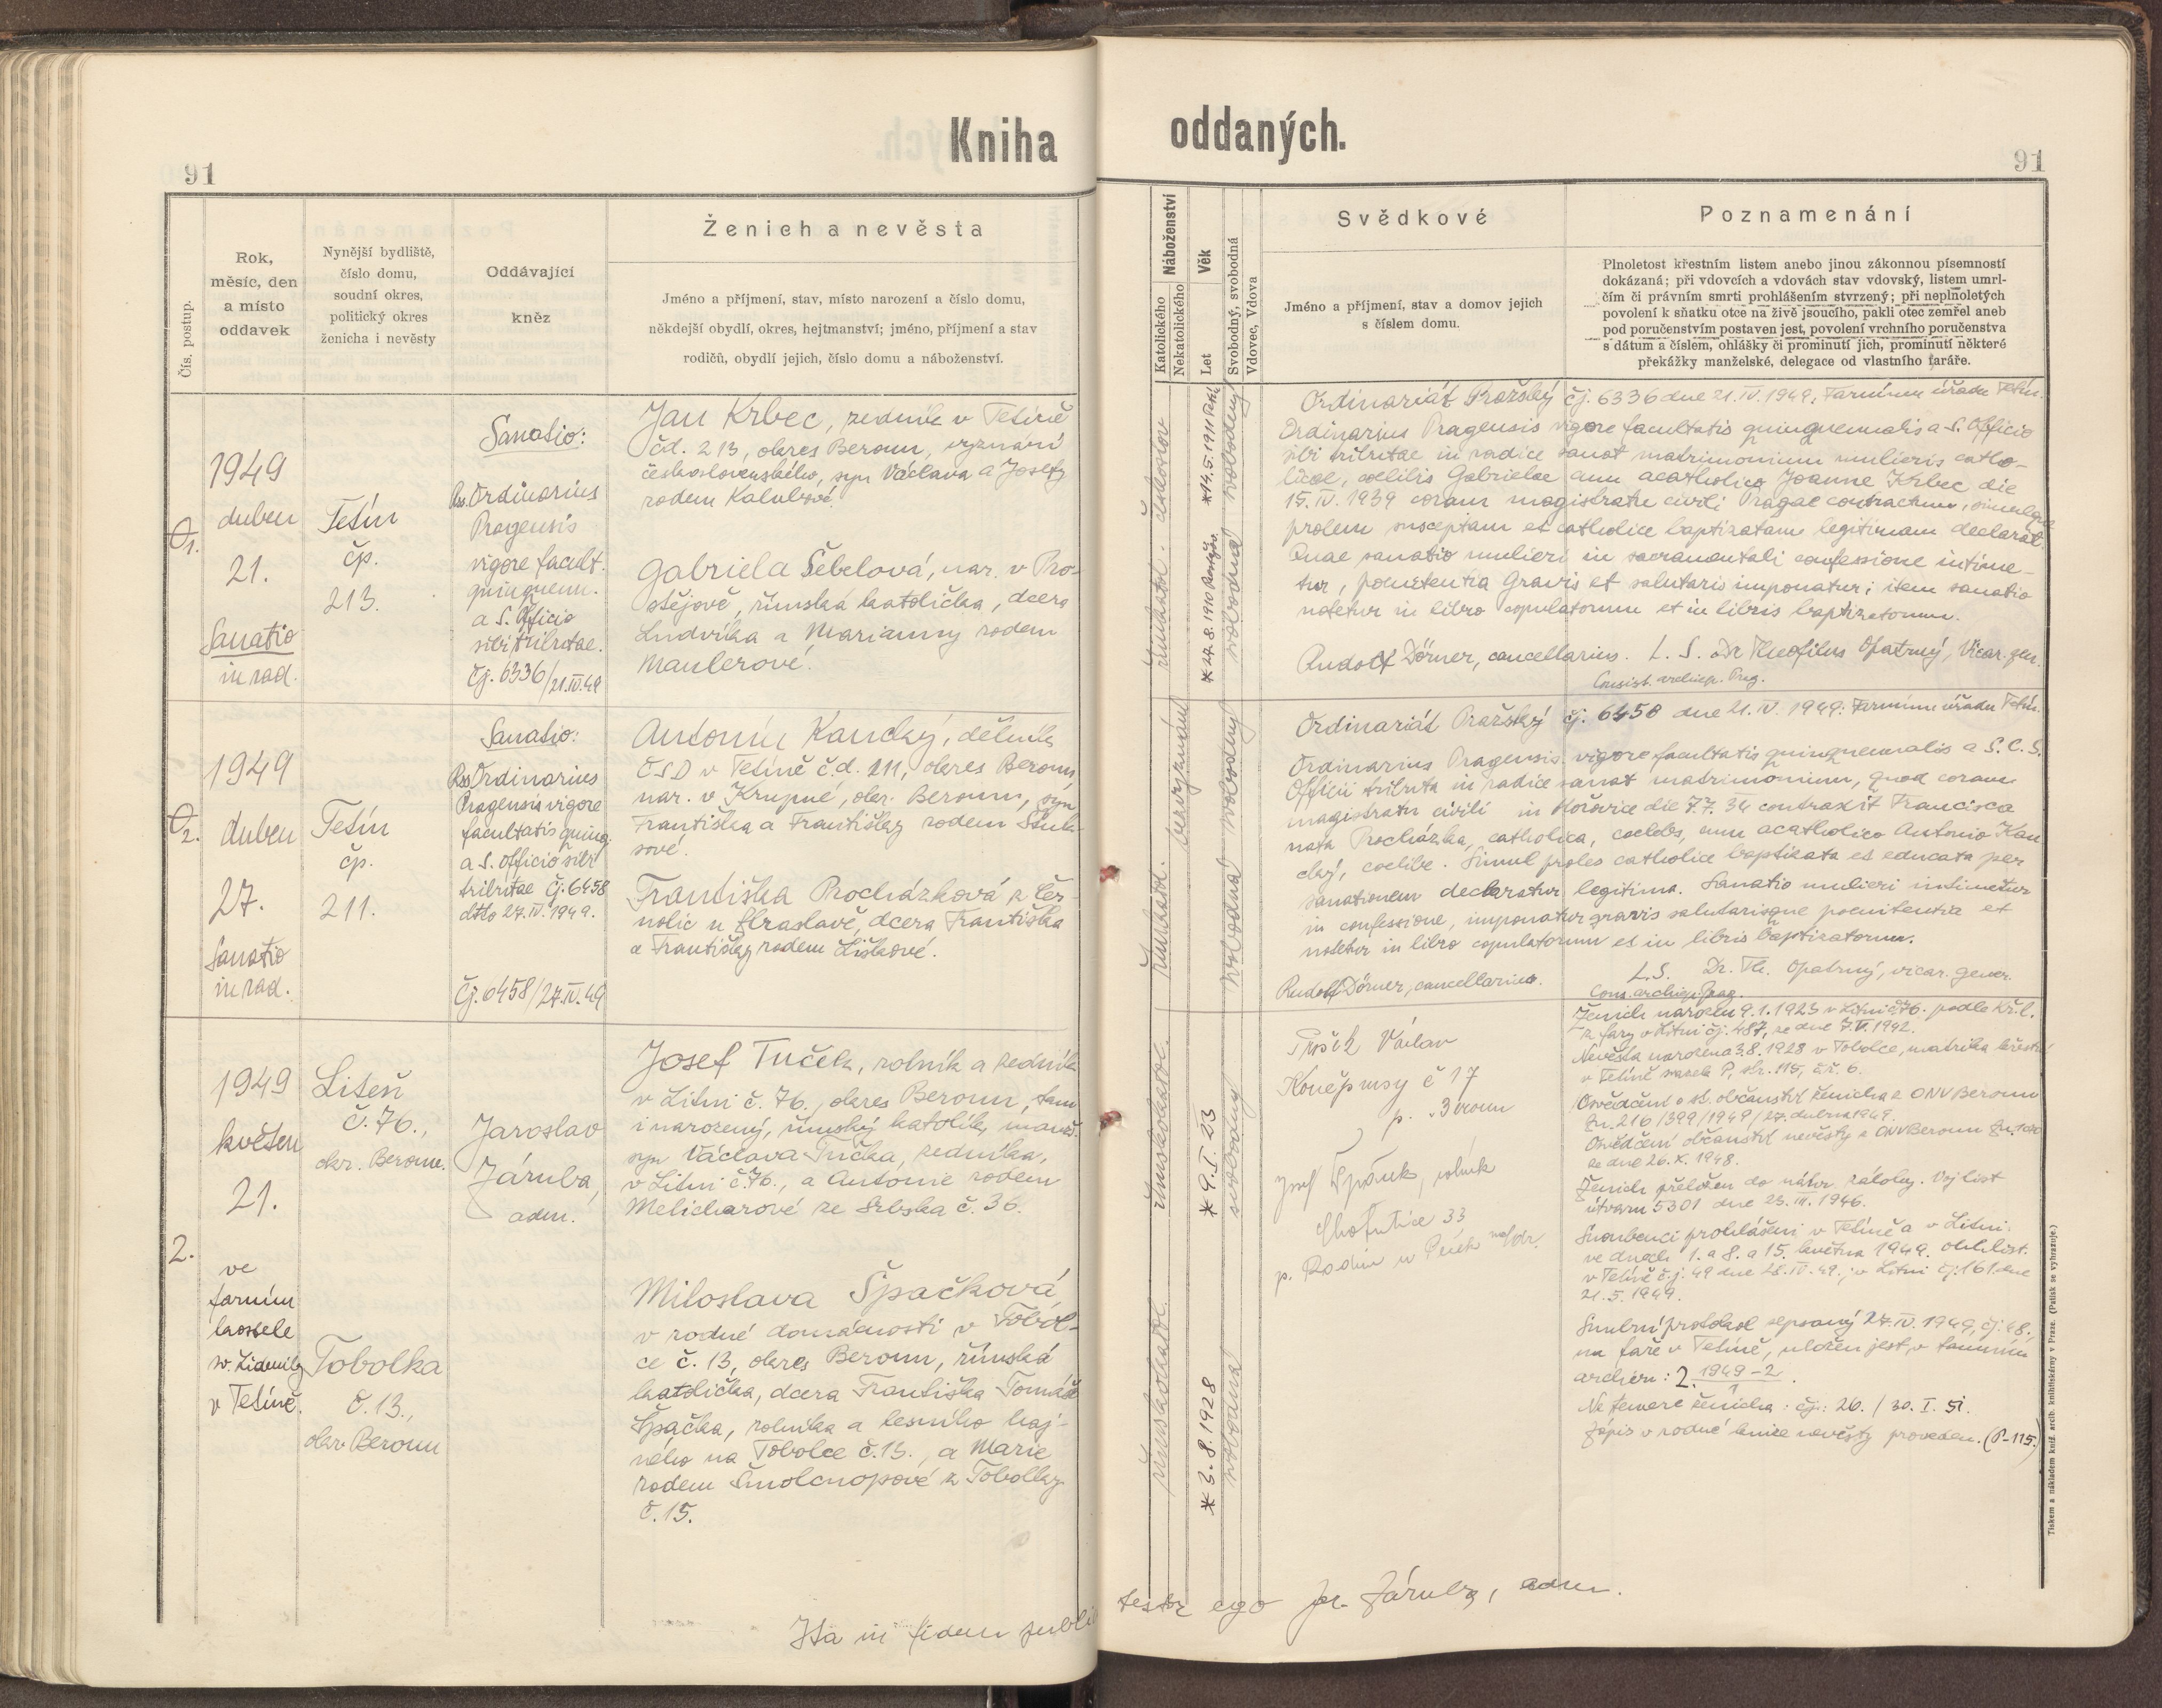 Kniha oddaných.
91
91
Čís. postup.
Rok,
měsíc, den
a místo
oddavek
Nynější bydliště,
číslo domu,
soudní okres,
politický okres
ženicha i nevěsty
Oddávající
kněz
Ženich a nevěsta
Jméno a příjmení, stav, místo narození a číslo domu,
někdejší obydlí, okres, hejtmanství; jméno, příjmení a stav
rodičů, obydlí jejich, číslo domu a náboženství.
Náboženství
Katolického
Nekatolického
Věk
Let
Svobodný, svobodná
Vdovec, Vdova
Svědkové
Jméno a příjmení, stav a domov jejich
s číslem domu.
Poznamenání
Plnoletost křestním listem anebo jinou zákonnou písemností
dokázaná; při vdovcích a vdovách stav vdovský, listem umrl-
čím či právním smrti prohlášením stvrzený; při neplnoletých
povolení k sňatku otce na živě jsoucího, pakli otec zemřel aneb
pod poručenstvím postaven jest, povolení vrchního poručenstva
s dátum a číslem, ohlášky či prominutí jich, prominutí některé
překážky manželské, delegace od vlastního faráře.
1.
1949
duben
21.
Sanatio
in rad.
Tetín
čp.
213.
Sanatio:
Rss. Ordinarius
Pragensis
vigore facult.
quinquenn.
a S. Officio
sibi tributae.
Čj. 6336/21.IV.49
Jan Krbec, zedník v Tetíně
čd. 213, okres Beroun, vyznání
československého, syn Václava a Josefy
rodem Kalubové.
Gabriela Šebelová, nar. v Pro-
stějově, římská katolička, dcera
Ludvíka a Marianny rodem
Manlerové.
římskokatol. českoslov
*24.8.1910 *14.5.1911
svobodná svobodný
Ordinariát Pražský čj. 6336 dne 21.IV.1949. Farnímu úřadu Tetín.
Ordinarius Pragensis vigore facultatis quinquennalis a S. Officio
sibi tributae in radice sanat matrimonium mulieris catho-
licae, coelibis Gabrielae cum acatholico Joanne Krbec die
15.IV.1939 coram magistratu civili Pragae contractum, simulque
prolem susceptam et catholice baptizatam legitimam declarat.
Quae sanatio mulieri in sacramentali confessione intime-
tur, poenitentia gravis et salutaris imponatur; item sanatio
notetur in libro copulatorum et in libris baptizatorum.
Rudolf Dörner, cancellarius. L. S. Dr Theofilus Opatrný, Vicar. gen.
Consist. archiep. Prag.
2.
1949
duben
27.
Sanatio
in rad.
Tetín
čp.
211.
Sanatio:
Rss Ordinarius
Pragensis vigore
facultatis quinq.
a S. Officio sibi
tributae čj. 6458
dtto 27.IV.1949.
Čj. 6458/27.IV.49
Antonín Kancký, dělník
ČSD v Tetíně č.d. 211, okres Beroun,
nar. v Krupné, okr. Beroun, syn
Františka a Františky rodem
sové.
Františka Procházková z Čer-
nolic u Zbraslavě, dcera Františka
a Františky rodem Liškové.
římskokatol. bezvyznání
svobodná svobodný
Ordinariát Pražský čj. 6458 dne 21.IV.1949: Farnímu úřadu Tetín.
Ordinarius Pragensis vigore facultatis quinquennalis a S.C.S.
Officii tributa in radice sanat matrimonium, quod coram
magistratu civili in Hořovice die 7.7.34 contraxit Francisca
nata Procházka, catholica, coelebs, cum acatholico Antonio Kan
cký, coelibe. Simul proles catholice baptizata et educata per
sanationem declaratur legitima. Sanatio mulieri intimetur
in confessione, imponatur gravis salutarisque poenitentia et
notetur in libro copulatorum et in libris baptizatorum.
Rudolf Dörner, cancellarius. L.S. Dr. Th. Opatrný, vicar. gener.
Cons. archiep. Prag.
2.
1949
květen
21.
ve
farním
kostele
sv. Lidmily
v Tetíně.
Liteň
č. 76.,
okr. Beroun.
Tobolka
č. 13.,
okr. Beroun
Jaroslav
Záruba,
adm.
Josef Tuček, rolník a zedník
v Litni č. 76., okres Beroun, tam
i narozený, římský katolík, manž.
syn Václava Tučka, zedníka,
v Litni č. 76., a Antonie rodem
Melicharové ze Srbska č. 36.
Miloslava Špačková,
v rodné domácnosti v Tobol-
ce č. 13, okres Beroun, římská
katolička, dcera Františka Tomáše
Špačka, rolníka a lesního haj-
ného na Tobolce č. 13., a Marie
rodem Šmolcnopové z Tobolky
č. 15.
římskokatol. římskokatol.
* 3.8.1928 * 9.I.23
svobodná svobodný
Václav
Koněprusy č 17
p. Beroun
Josef Špaček, rolník
33
Ženich narozen 9.1.1923 v Litni čp. 76. podle Kř. l.
z fary v Litni čj. 487, ze dne 7.V.1942.
Nevěsta narozena 3.8.1928 v Tobolce, matrika křestní
v Tetíně svazek P, str. 115, č.ř. 6.
Osvědčení o st. občanství ženicha z ONV Beroun
zn. 216/1399/1949/27. dubna 1949.
Osvědčení občanství nevěsty z ONV Beroun
ze dne 26.X.1948.
Ženich přeložen do náhr. zálohy. Voj list
útvaru 5301 dne 23.III.1946.
Snoubenci prohlášeni v Tetíně a v Litni
ve dnech 1. a 8. a 15. května 1949. Ohl. list.
v Tetíně č.j. 49 dne 28.IV.49.; v Litni čj. 161 dne
21.5.1949.
Snubní protokol sepsaný 27.IV.1949, čj. 48.,
na faře v Tetíně, uložen jest v farním
archivu: 2. 1949-2/1.
Na temere ženicha: čj.: 26./30.I.51.
Zápis v rodné knize nevěsty proveden. (P-115.)
Ita in fidem publi testor ego Jar. Záruba, adm.
Tiskem a nákladem kníž. arcib. knihtiskárny v Praze. (Patisk se vyhrazuje.)